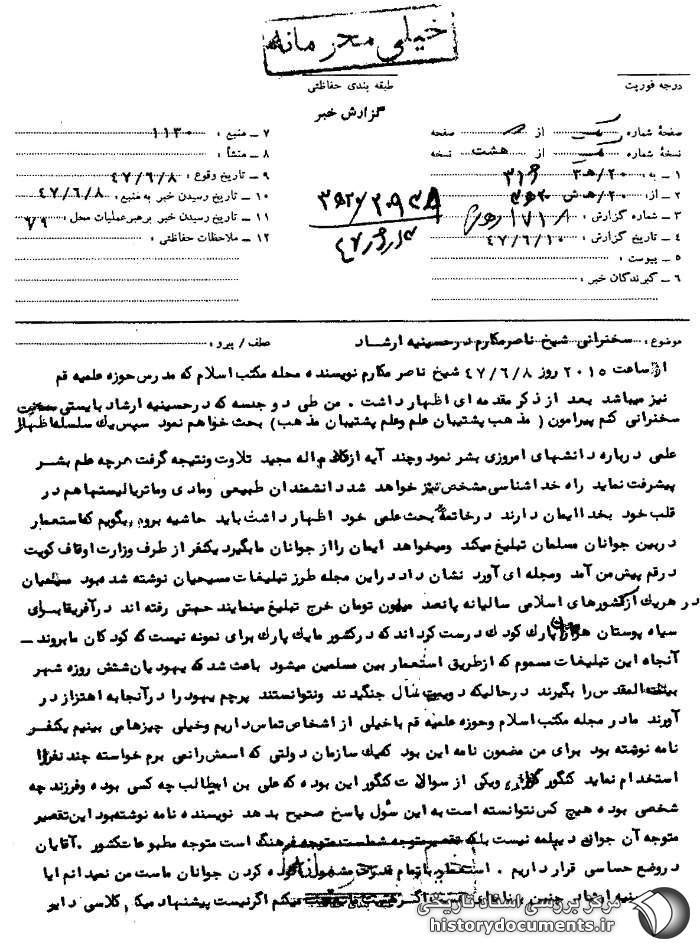 خیلی محرمانه
درجه فوریت
طبقه بندی حفاظتی
گزارش خبر
صفحهٔ شماره : یک از صفحه
نسخهٔ شماره : از هشت نسخه
۱ – به : ۲۰/ه‍ ۳ ۳۱۶
۲ – از : ۲۰/ه‍ ش
۳ – شماره گزارش : ۱۷۱۸
۴ – تاریخ گزارش : ۴۷/۶/۱۰
۵ – پیوست :
۶ – گیرندگان خبر :
۷ – منبع : ۱۱۳۰
۸ – منشأ :
۹ – تاریخ وقوع : ۴۷/۶/۸
۱۰ – تاریخ رسیدن خبر به منبع : ۴۷/۶/۸
۱۱ – تاریخ رسیدن خبر برهبر عملیات محل : ۶/۹
۱۲ – ملاحظات حفاظتی :
موضوع : سخنرانی شیخ ناصر مکارم در حسینیه ارشاد
عطف / پیرو :
از ساعت ۲۰۱۵ روز ۴۷/۶/۸ شیخ ناصر مکارم نویسنده مجله مکتب اسلام که مدرس حوزه علمیه قم
نیز میباشد بعد از ذکر مقدمه ای اظهار داشت . من طی دو جلسه که در حسینیه ارشاد بایستی
سخنرانی کنم پیرامون ( مذهب پشتیبان علم و علم پشتیبان مذهب ) بحث خواهم نمود سپس یک سلسله اظهار
علمی درباره دانشهای امروزی بشر نمود و چند آیه از کلام اله مجید تلاوت و نتیجه گرفت هرچه علم بشر
پیشرفت نماید راه خداشناسی مشخص تیز خواهد شد دانشمندان طبیعی ومادی وماتریالیستها هم در
قلب خود بخدا ایمان دارند درخاتمه بحث علمی خود اظهار داشت باید حاشیه بروم بگویم که استعمار
دربین جوانان مسلمان تبلیغ میکند ومیخواهد ایمان را از جوانان ما بگیرد یکنفر از طرف وزارت اوقاف کویت
در قم پیش من آمد ومجله ای آورد نشان داد در این مجله طرز تبلیغات مسیحیان نوشته شده بود مسیحیان
در هریک از کشورهای اسلامی سالیانه پانصد میلیون تومان خرج تبلیغ مینمایند حتی رفته اند در آفریقا برای
سیاه پوستان پارک کودک درست کرده اند که در کشور ما یک پارک برای نمونه نیست که کودکان ما بروند –
آنجا ه این تبلیغات مسموم که از طریق استعمار بین مسلمین میشود باعث شد که یهودیان شش روزه شهر
بیت المقدس را بگیرند در حالیکه دویست سال جنگیدند ونتوانستند پرچم یهود را در آنجا به اهتزاز در
آورند ما در مجله مکتب اسلام وحوزه علمیه قم با خیلی از اشخاص تماس داریم وخیلی چیزها می بینیم یکنفر
نامه نوشته بود برای من مضمون نامه این بود که یک سازمان دولتی که اسمش را نمی برم خواسته چند نفر را
استخدام نماید کنگور ویکی از سوالات کنگور این بوده که علی بن ابیطالب چه کسی بوده وفرزند چه
شخصی بوده هیچ کس نتوانسته است به این سئول پاسخ صحیح بدهد نویسنده نامه نوشته بود این تقصیر
متوجه آن جوانی دیپلمه نیست بلکه تقصیر متوجه فرهنگ است متوجه مطبوعات کشور . آقایان
در وضع حساسی قرار داریم . استعمار با تمام قدرت مشغول کردن جوانان ماست من نمیدانم ایا
حسینیه ارشاد چنین میکنم اگر نیست پیشنهاد میکنم کلاسی دایر
طبقه بندی حفاظتی
مرکز بررسی اسناد تاریخی
historydocuments.ir